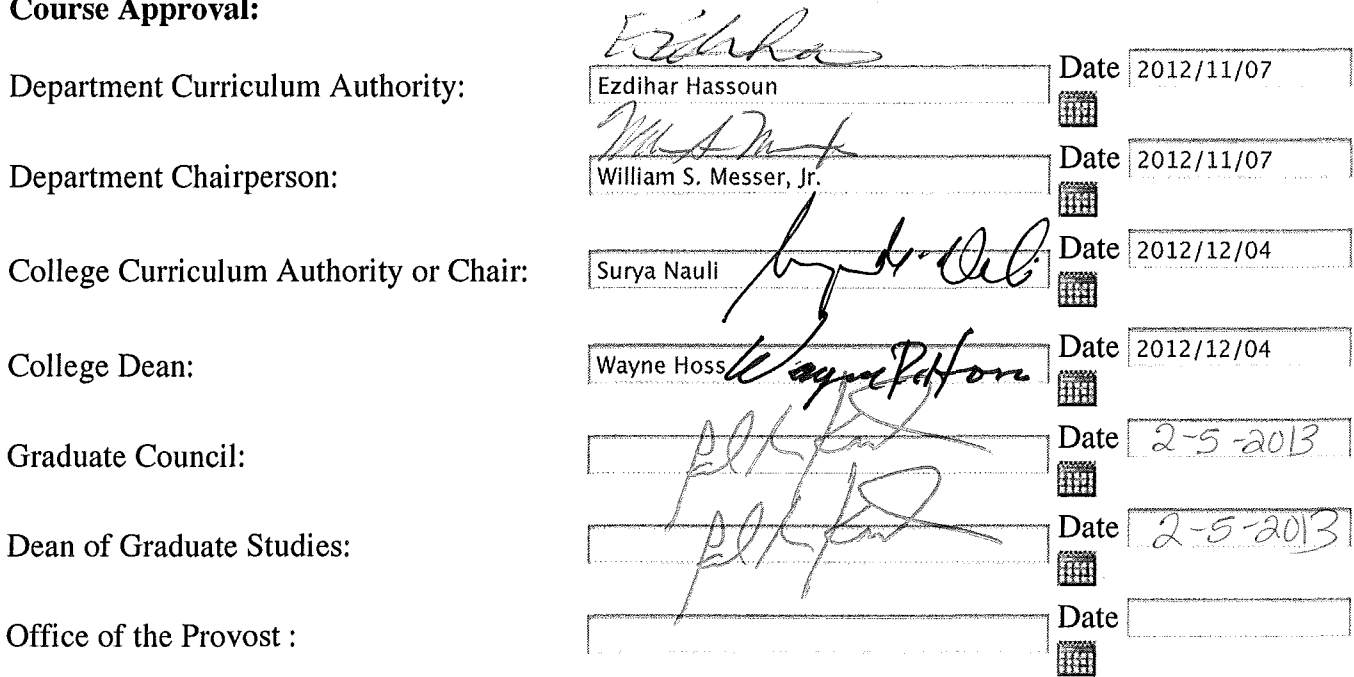 Course Approval:
Department Curriculum Authority: Ezdihar Hassoun Date 2012/11/07
Department Chairperson: William S. Messer, Jr. Date 2012/11/07
College Curriculum Authority or Chair: Surya Nauli Date 2012/12/04
College Dean: Wayne Hoss Wayne P. Hoss Date 2012/12/04
Graduate Council: Date 2-5-2013
Dean of Graduate Studies: Date 2-5-2013
Office of the Provost : Date